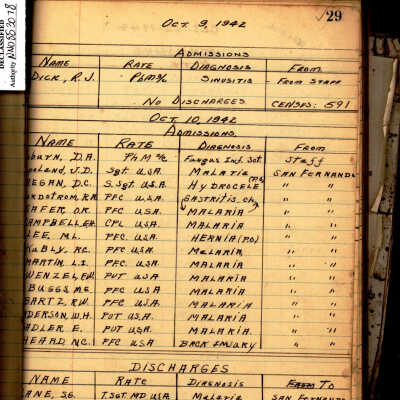 DECLASSIFIED
Authority NND 853078
29
Oct. 9, 1942
Admissions
Name Rate Diagnosis From
Dick, R.J. PhM 3/c Sinusitis From Staff
No Discharges Census: 591
Oct 10, 1942
Admissions
Name Rate Diagnosis From
burn, D.A. PhM 2/c Fungus Inf. Staff
eland, J.D. Sgt U.S.A. Malaria San Fernando
egan, D.C. S.Sgt. U.S.A. Hydrocele (P.O.) " "
rdstrom, R.A. PFC U.S.A. Gastritis, Ch. " "
eafer O.R. PFC U.S.A. Malaria " "
ampbell, E.H. CPL U.S.A. Malaria " "
Lee, M.L. PFC U.S.A. Hernia (P.O.) " "
Kubly, R.C. PFC U.S.A. Malaria " "
Martin L.I. PFC. U.S.A. Malaria " "
Wenzel, E.W. PVT U.S.A Malaria " "
Buggs, M.E. PFC U.S.A. Malaria " "
Bartz, R.W. PFC U.S.A. Malaria " "
derson, W.H. PVT U.S.A. Malaria " "
adler E. PVT U.S.A. Malaria " "
Heard N.C. PFC U.S.A Back Injury " "
Discharges
Name Rate Diagnosis From To
ane, S.G. T.Sgt. MD USA Malaria San Fernando